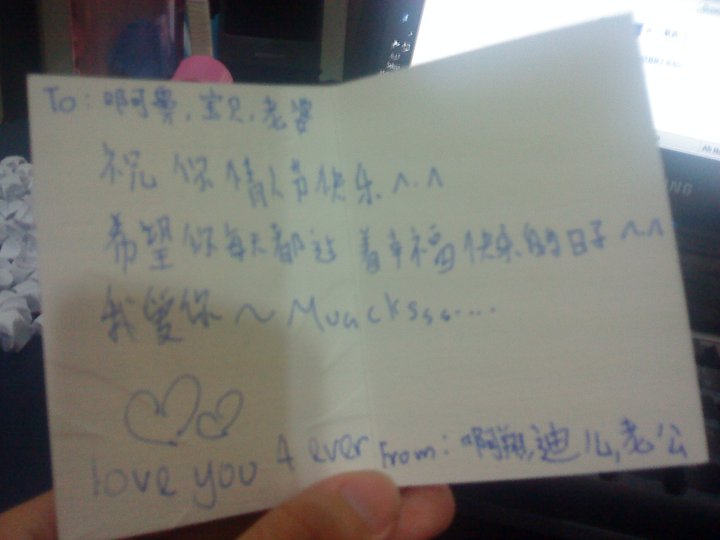 To: 啊鼻, 宝贝, 老婆
祝你情人节快乐^.^
希望你每天都过着幸福快乐的日子^.^
我爱你~Muackssss....
love you 4 ever
From: 啊翔, 迪仏, 老公
SUNG